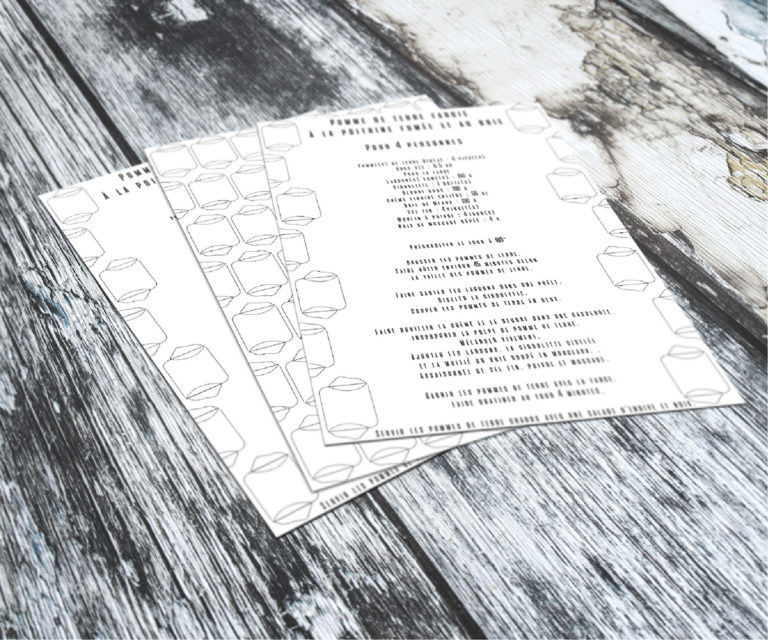 Pomme de terre farcie
à la poitrine fumée et au noix
Pour 4 personnes
Pommes de terre Bintje : 4 pièces
Gros sel : 0,5 kg
Pour la farce
Lardons fumés : 100 g
Ciboulette : 1 botte
Beurre doux : 100 g
Crème liquide entière : 50 cl
Noix de Muscade : 100 g
Sel fin : 4 pincées
Moulin à poivre : 4
Noix de muscade râpée : 4 g
Préchauffer le four à 180°
Brosser les pommes de terre.
Faire rôtir environ 45 minutes selon
la taille des pommes de terre.
Faire sauter les lardons dans une poêle.
Ciseler la ciboulette.
Couper les pommes de terre en deux.
Faire bouillir la crème et le beurre dans une casserole
Incorporer la pulpe de pomme de terre.
Mélanger vivement.
Ajouter les lardons, la ciboulette ciselée
et la moitié du noix coupé en morceaux.
Assaisonner de sel fin, poivre et muscade.
Garnir les pommes de terre avec la farce.
Faire gratiner au four 4 minutes.
Servir les pommes de terre chaudes avec une salade d'endive et noix
Pomm
à la poi
Servir les pommes de